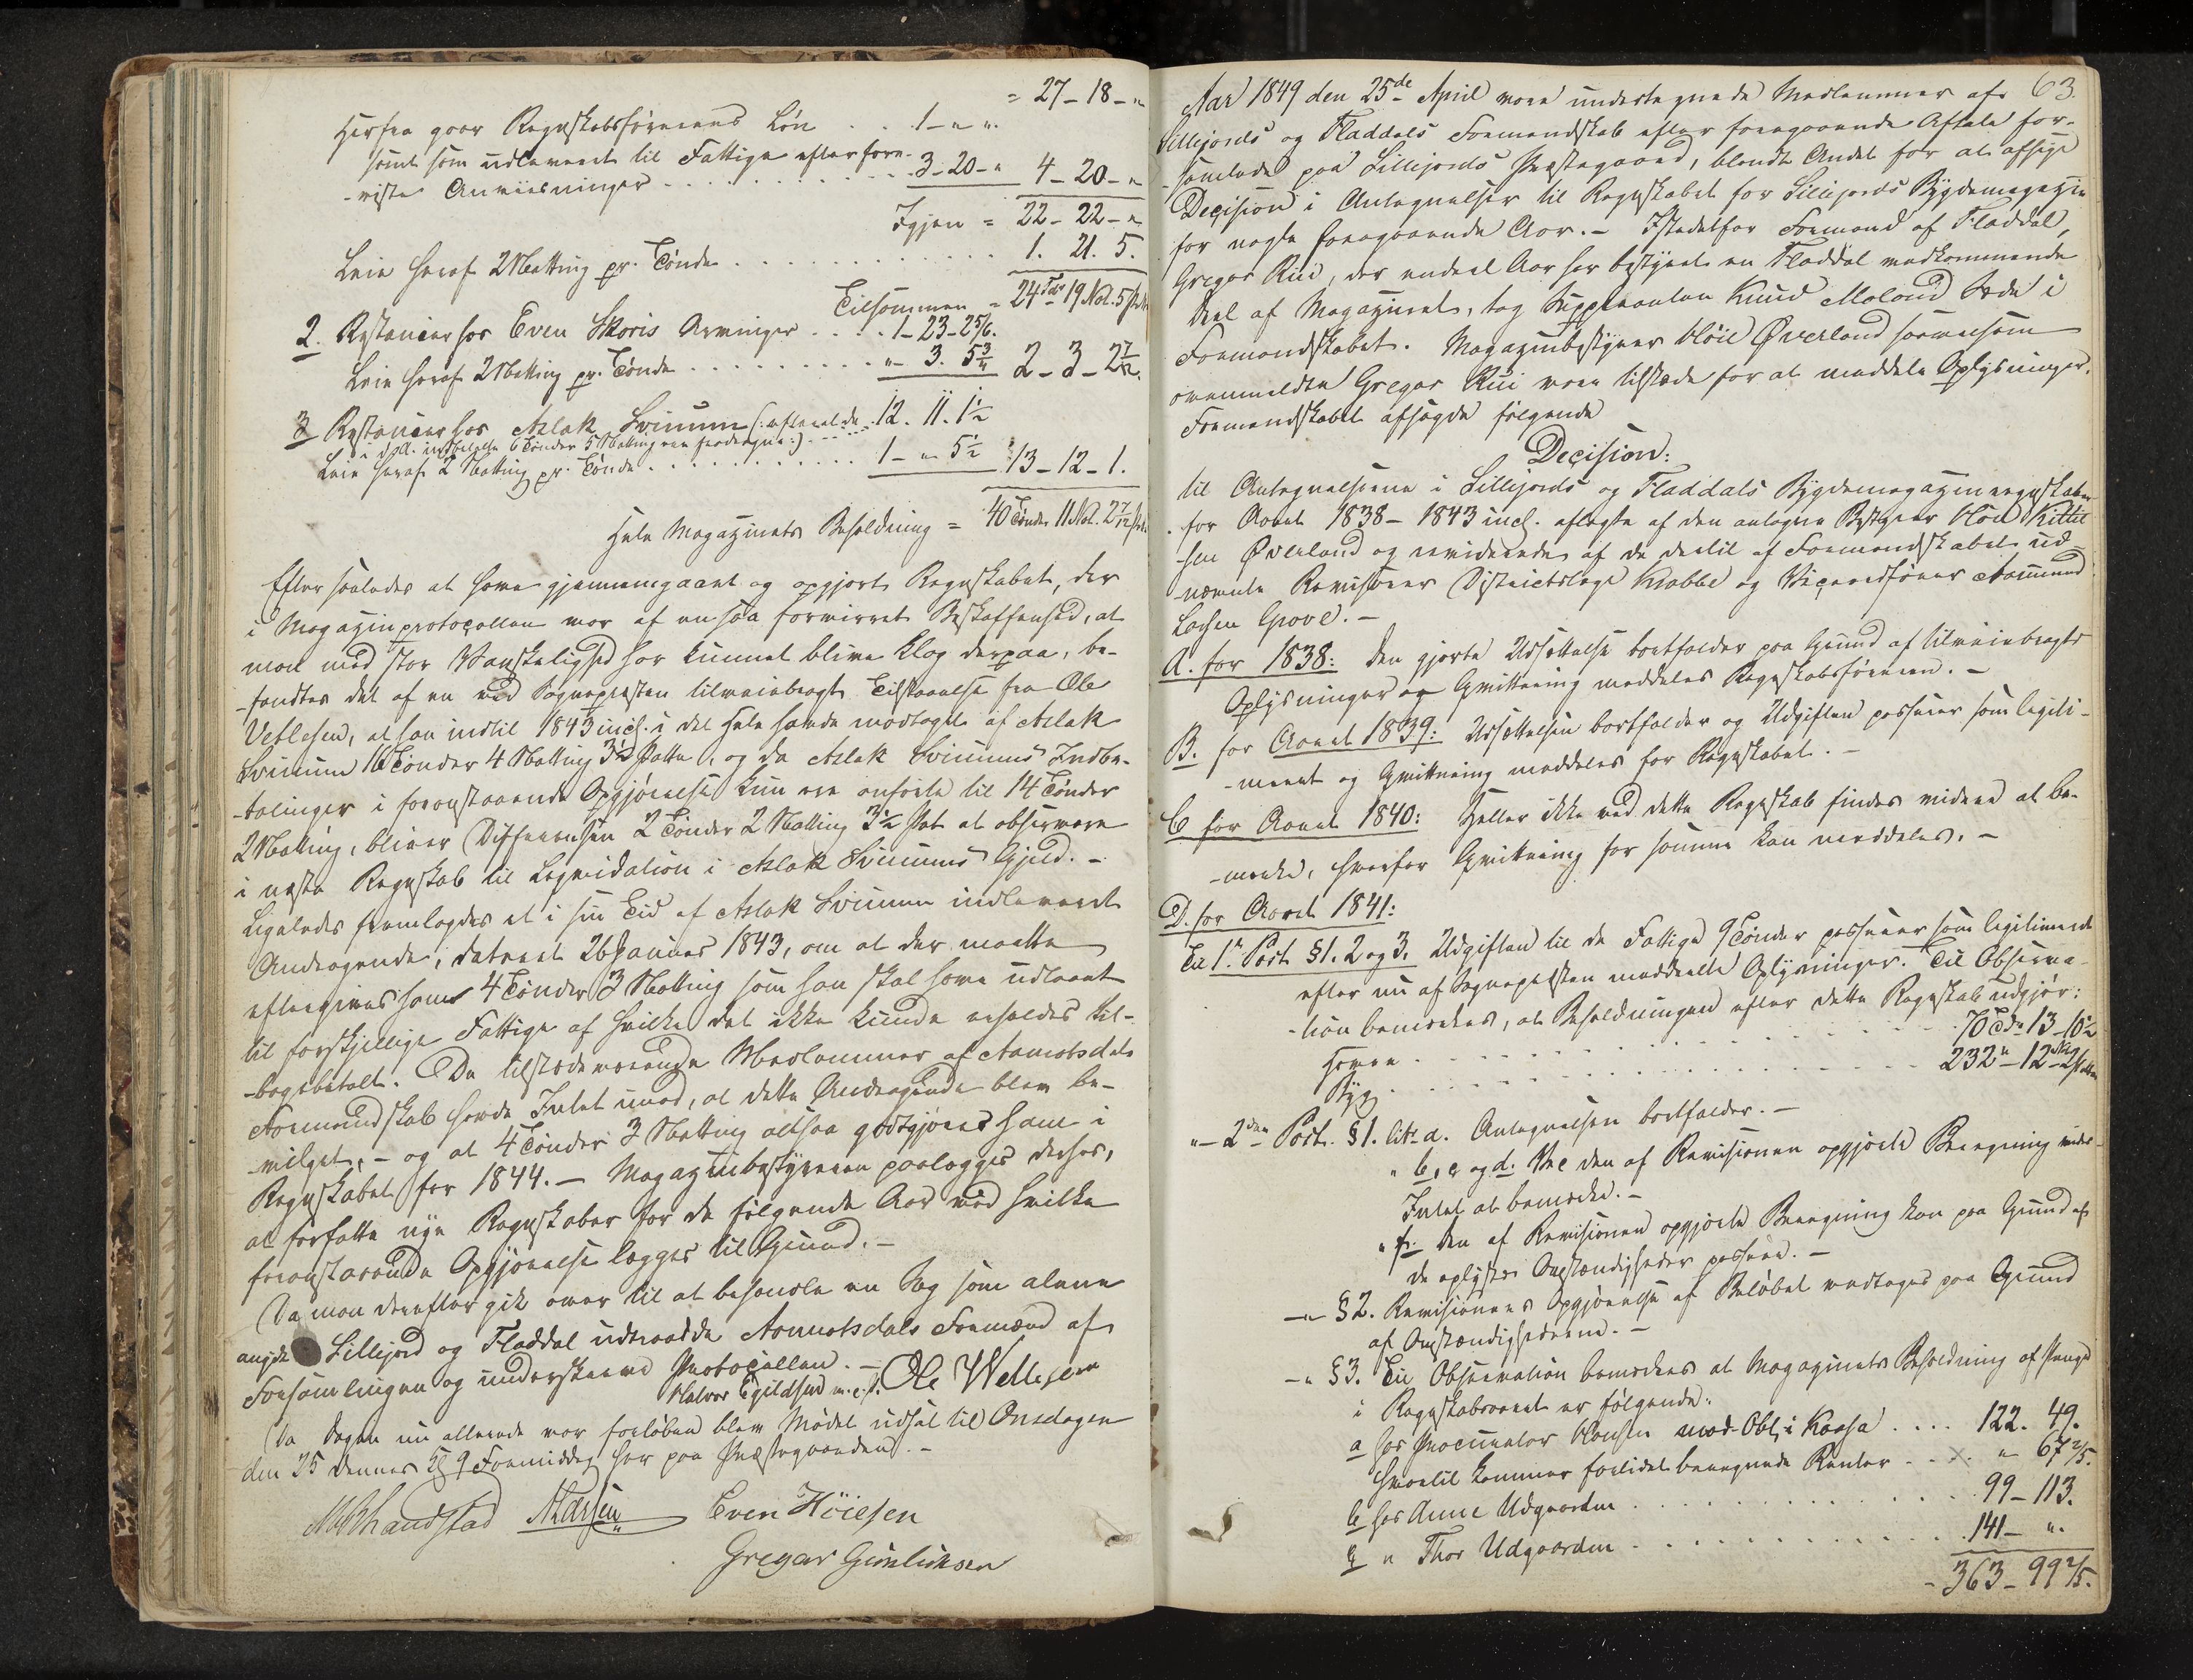 = 27 - 18 - "
Herfra gaar Regnskabsførerens Løn . . 1 - " ".
samt som udleveret til Fattige efter fore-
-viste Anviisninger . . . . . . . . 3 - 20 - " 4 - 20 - "
Igjen = 22 - 22 - "
Leie heraf 2 Setting pr. Tønde . . . . . . . . 1. 21. 5.
Tilsammen = 24 Tdr 19 Set. 5
2. Restancer hos Even Skoris Arvinger . . . 1 - 23 - 2 5/6.
Leie heraf 2 Setting pr. Tønde . . . . . . " - 3. 5 3/4 2 - 3 - 2 7/12.
3 Restancer hos Aslak Svinum (: afteraldt 12. 11. 1½
indbetalte 6 Tønder 5 Setting
Leie heraf 2 Setting pr. Tønde . . . . . . 1 - " 5½ 13 - 12 - 1.
Hele Magazinets Beholdning = 40 Tønder 11 Set. 2 7/12
Efter saaledes at have gjennemgaaet og opgjort Regnskabet, der
i Magazinprotocollen var af en saa forvirret Beskaffenhed, at
man med stor Vanskelighed har kunnet blive klog derpaa, be-
-fandtes det af en ved Sognepresten tilveiebragt Tilstaaelse fra Ole
Vetlesen, at han indtil 1843 incl. i det Hele havde modtaget af Aslak
Svinum 16 Tønder 4 Setting 3½ Potter, og da Aslak Svinums Indbe-
-talinger i foranstaaende Opgjørelse kun ere anførte til 14 Tønder
2 Setting, bliver Differensen 2 Tønder 2 Setting 3½ Pot at observere
i næste Regnskab til Liqvidation i Aslak Svinums Gjeld. -
Ligeledes fremlagdes et i sin Tid af Aslak Svinum indleveret
Andragende, dateret 26 Januar 1843, om at der maatte
eftergives ham 4 Tønder 3 Setting som han skal have udlaant
til forskjellige Fattige af hvilke det ikke kunde erholdes til-
-bagebetalt. De tilstedeværende Medlemmer af Aamotsdals
Formandskab havde Intet imod, at dette Andragende blev be-
-vilget, - og at 4 Tønder 3 Setting altsaa godtgjøres ham i
Regnskabet for 1844. - Magazinbestyreren paalægges derhos,
at forfatte nye Regnskaber for de følgende Aar ved hvilke
foranstaaende Opgjørelse lægges til Grund. -
Da man derefter gik over til at behandle en Sag som alene
angik Sillejord og Fladdal udtraadte Aamotsdals Formænd af
Forsamlingen og underskreve Protocollen. - Ole Wetlesen
Halvor Egildsen m. p. P.
Da Dagen nu allerede var forløben blev Mødet udsat til Onsdagen
den 25 dennes Kl 9 Formiddag her paa Præstegaarden. -
Even Høiesen
Gregar Gunliksen
63.
Aar 1849 den 25de April vare undertegnede Medlemmer af
Sillejords og Fladdals Formandskab efter foregaaende Aftale for-
-samlede paa Sillejords Præstegaard, blandt Andet for at afsige
Decision i Antegnelser til Regnskabet for Sillejords Bygdemagazin
for nogle foregaaende Aar. - Istedetfor Formand af Fladdal,
Gregar Rui, der endeel Aar har bestyret en Fladdal vedkommende
Deel af Magazinet, tog Suppleanten Knud Moland Sæde i
Formandskabet. Magazinbestyrer Høie Øverland saavelsom
ovenmeldte Gregar Rui vare tilstede for at meddele Oplysninger.
Formandskabet afsagde følgende
Decision:
til Antegnelserne i Sillejords og Fladdals Bygdemagazinregnskaber
for Aaret 1838 - 1843 incl. aflagte af den antagne Bestyrer Høie Kittil-
-sen Øverland og reviderede af de dertil af Formandskabet ud-
-nævnte Revisorer Districtslæge Krabbe og Veiopsynsfører Aasmund
Larsen Grave. -
A. for 1838: Den gjorte Udsættelse bortfalder paa Grund af tilveiebragte
Oplysninger og Qvittering meddeles Regnskabsføreren. -
B. for Aaret 1839: Udsættelsen bortfalder og Udgiften passerer som legiti-
-meret og Qvittering meddeles for Regnskabet. -
C for Aaret 1840: Heller ikke ved dette Regnskab findes videre at be-
-mærke, hvorfor Qvittering for samme kan meddeles. -
D. for Aaret 1841:
Til 1ste Post §1. 2 og 3. Udgiften til de Fattige 9 Tønder passerer som legitimeret
efter nu af Sognepresten meddeelte Oplysninger. Til Observa-
-tion bemærkes, at Beholdningen efter dette Regnskab udgjør:
Havre . . . . . . . . . . 70 Tdr 13 - 10½
Byg . . . . . . . . . . 232 " - 12 Set 2 Potter
"- 2den Post. §1. litr a. Antegnelsen bortfalder. -
" b, c og d. Ved den af Revisionen opgjorte Beregning videre
Intet at bemærke. -
" f. Den af Revisionen opgjorte Beregning kan paa Grund af
de oplyste Omstændigheder passere. -
-"- §2. Revisionens Opgjørelse af Beløbet vedtages paa Grund
af Omstændighederne. -
-" §3. Til Observation bemærkes at Magazinets Beholdning af Penge
i Regnskabsaaret er følgende:
a hos Procurator Hansen mod Obl. i Kassa . . . . 122. 49.
hvortil kommer forlidet beregnede Renter . . x. " 67 2/5.
b hos Anne Udgaarden . . . . . . . . . 99 - 113.
c " Thor Udgaarden . . . . . . . . . 141 - ".
- 363 - 99 2/5.